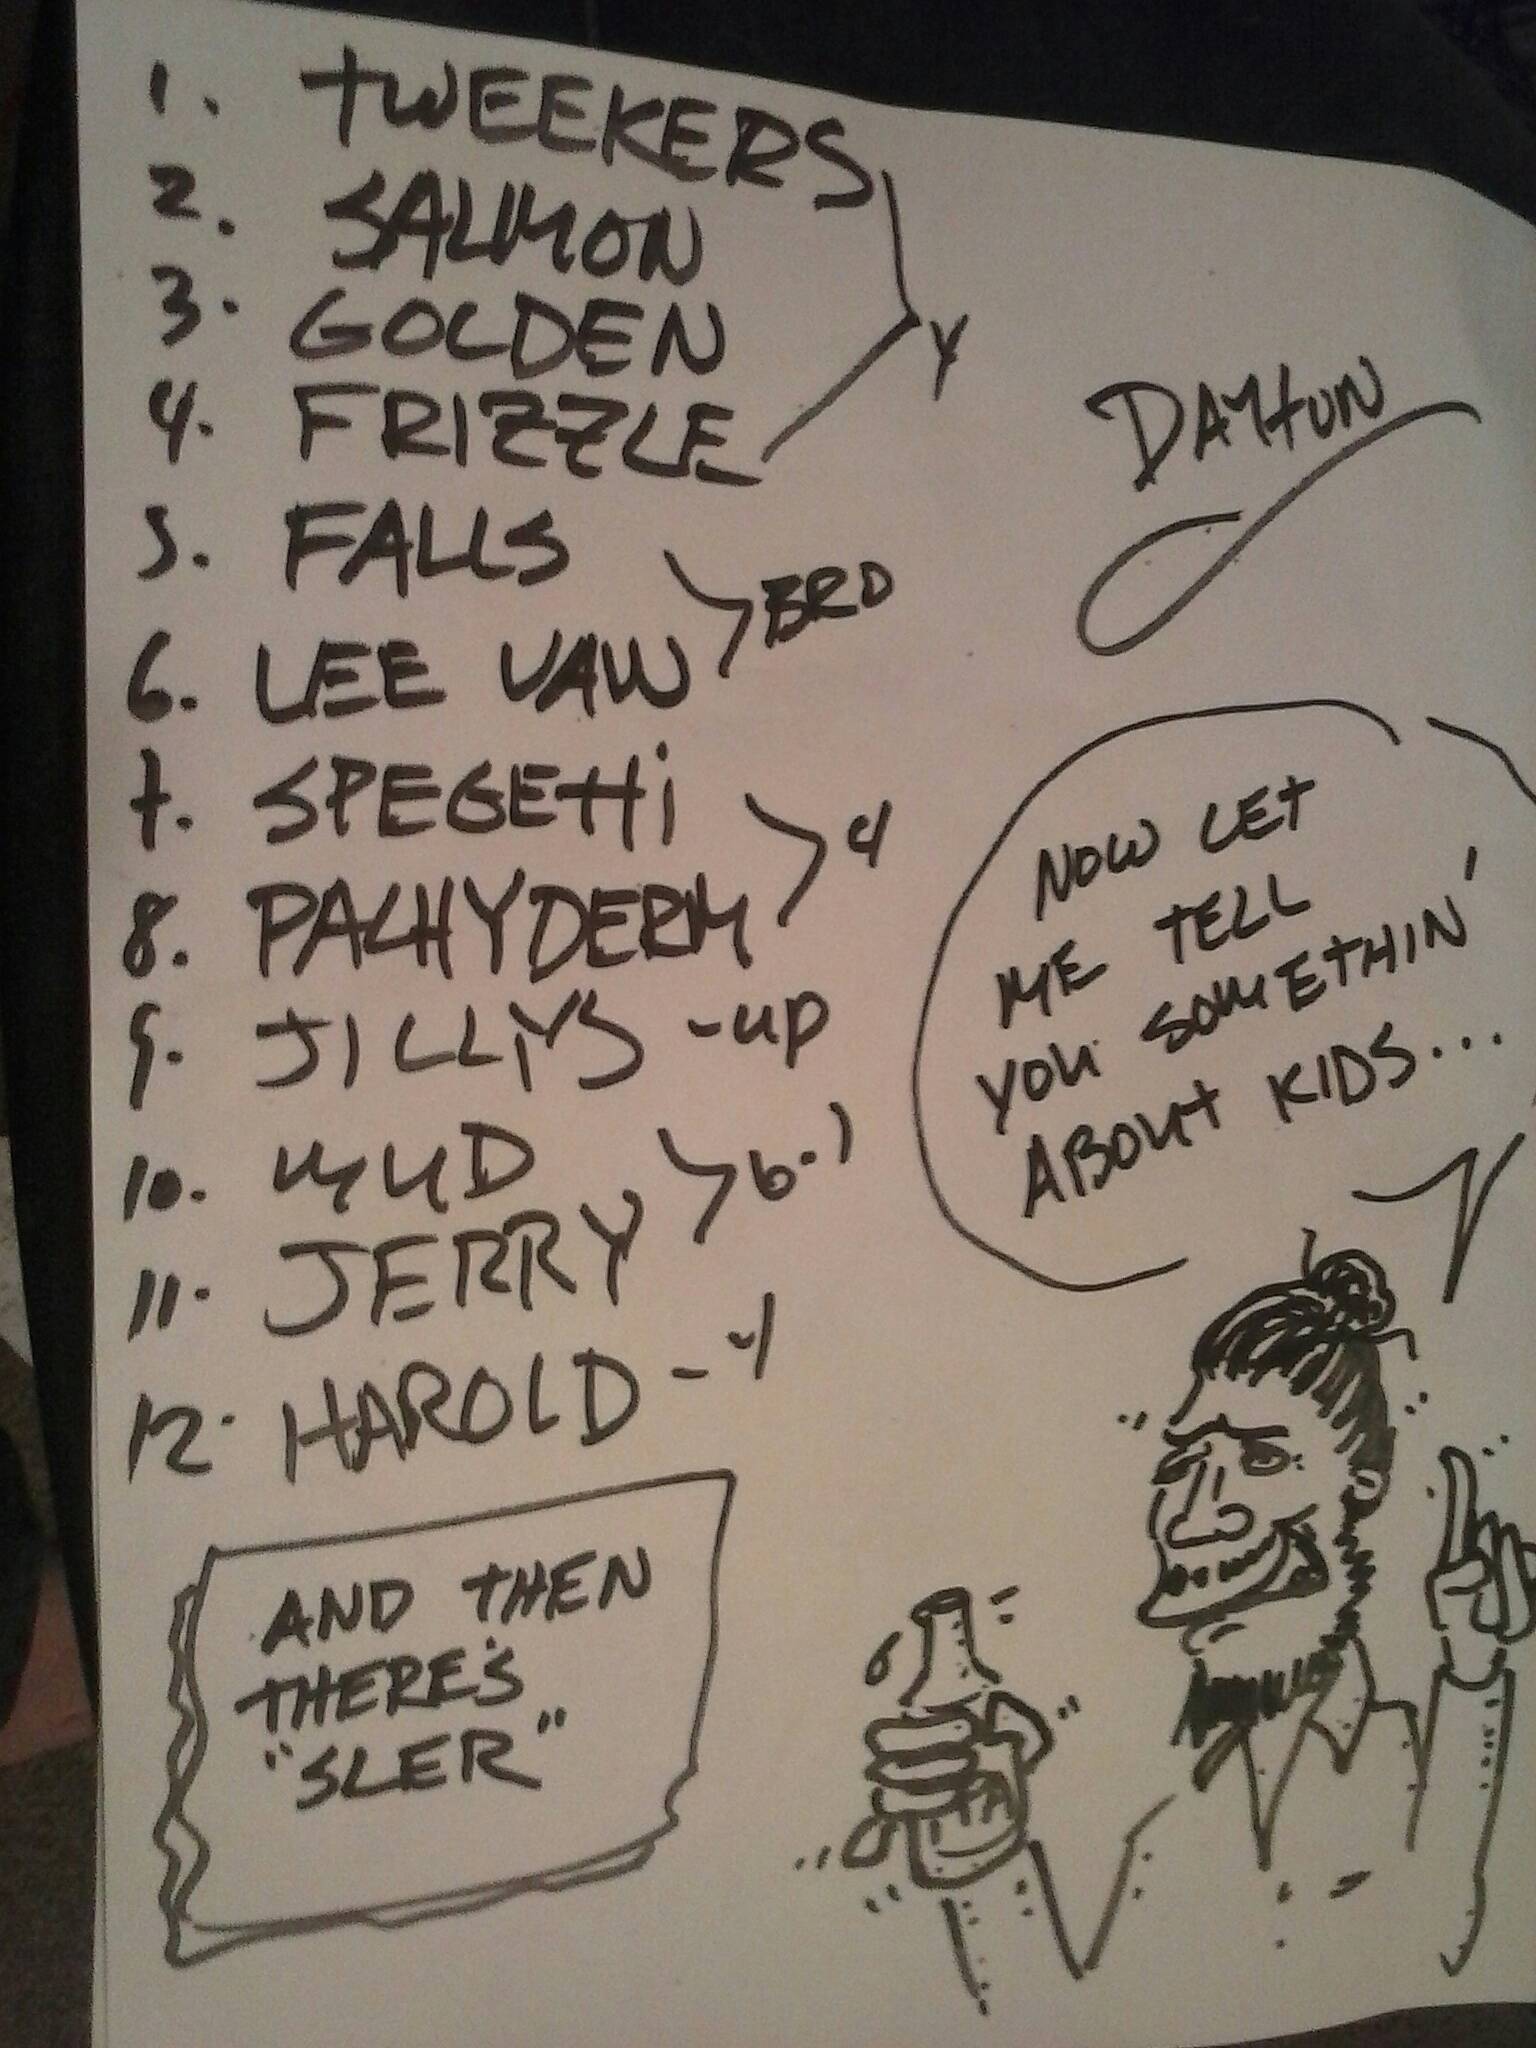 1. TWEEKERS
2. SALMON
3. GOLDEN
4. FRIZZLE
5. FALLS
6. LEE VAW
7. SPEGETTI
8. PACHYDERM
9. JILLYS -UP
10. MUD
11. JERRY
12. HAROLD
Y
BRO
DAYTON
NOW LET
ME TELL
YOU SOMETHIN'
ABOUT KIDS...
AND THEN
THERE'S
"SLER"